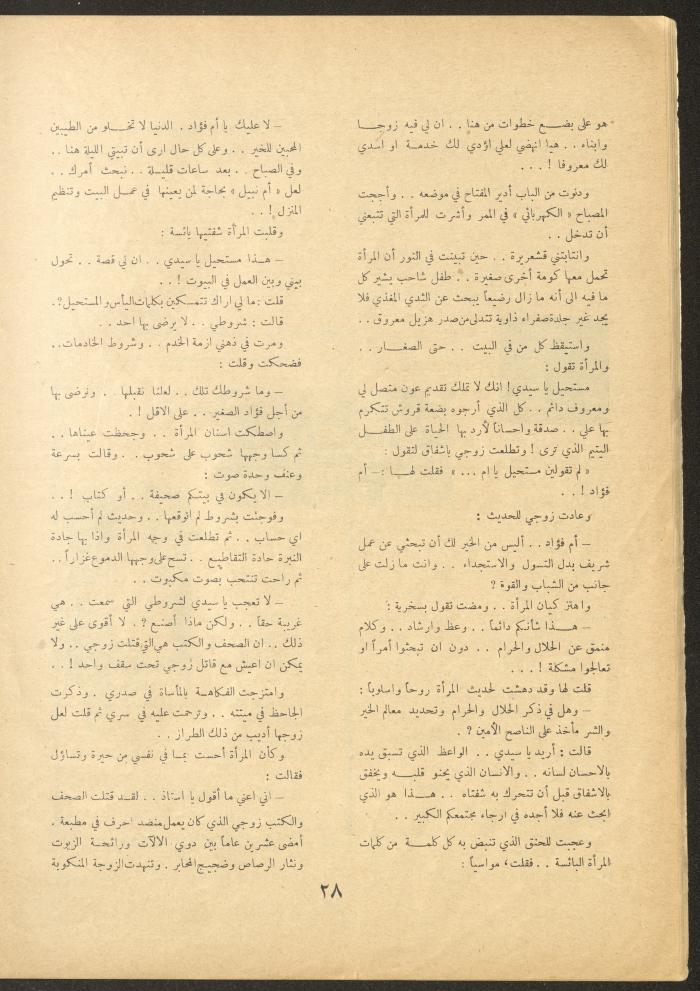 هو على بضع خطوات من هنا . . ان لي فيه زوجا
وابناء . . هيا انهضي لعلي اؤدي لك خدمة او اسدي
لك معروفا ! . . .
ودنوت من الباب أدير المفتاح في موضعه . . وأججت
المصباح « الكهربائي » في الممر وأشرت للمرأة التي تتبعني
أن تدخل . .
وانتابتني قشعريرة . . حين تبينت في النور أن المرأة
تحمل معها كومة أخرى صغيرة . . طفل شاحب يشير كل
ما فيه الى أنه ما زال رضيعاً يبحث عن الثدي المغذي فلا
يجد غير جلدة صفراء ذاوية تتدلى من صدر هزيل معروق . .
واستيقظ كل من في البيت . . حتى الصغار . .
والمرأة تقول :
مستحيل يا سيدي ! انك لا تملك تقديم عون متصل لي
ومعروف دائم . . كل الذي أرجوه بضعة قروش تتكرم
بها علي . . صدقة واحساناً لأرد بها الحياة على الطفل
اليتيم الذي ترى ! وتطلعت زوجي باشفاق لتقول :
« لم تقولين مستحيل يا ام ... » فقلت لها : – أم
فؤاد ! . .
وعادت زوجي للحديث :
– أم فؤاد . . أليس من الخير لك أن تبحثي عن عمل
شريف بدل التسول والاستجداء . . وانت ما زلت على
جانب من الشباب والقوة ؟
واهتز كيان المرأة . . ومضت تقول بسخرية :
– هذا شأنكم دائماً . . وعظ وارشاد . . وكلام
منمق عن الحلال والحرام . . دون ان تبحثوا أمراً او
تعالجوا مشكلة ! . . .
قلت لها وقد دهشت لحديث المرأة روحاً واسلوباً :
– وهل في ذكر الحلال والحرام وتحديد معالم الخير
والشر مأخذ على الناصح الأمين ؟ .
قالت : أريد يا سيدي . . الواعظ الذي تسبق يده
بالاحسان لسانه . . والانسان الذي يحنو قلبه ويخفق
بالاشفاق قبل أن تتحرك به شفتاه . . هذا هو الذي
ابحث عنه فلا أجده في ارجاء مجتمعكم الكبير . .
وعجبت للحنق الذي تنبض به كل كلمة من كلمات
المرأة البائسة . . فقلت ، مواسياً :
– لا عليك يا أم فؤاد . الدنيا لا تخلو من الطيبين
المحبين للخير . . وعلى كل حال ارى أن تبيتي الليلة هنا . .
وفي الصباح . . بعد ساعات قليلة . . نبحث أمرك . .
لعل « أم نبيل » بحاجة لمن يعينها في عمل البيت وتنظيم
المنزل ! . .
وقلبت المرأة شفتيها يائسة :
– هذا مستحيل يا سيدي . . ان لي قصة . . تحول
بيني وبين العمل في البيوت ! . .
قلت : ما لي اراك تتمسكين بكلمات اليأس والمستحيل ؟ .
قالت : شروطي . . لا يرضى بها احد . .
ومرت في ذهني ازمة الخدم . . وشروط الخادمات . .
فضحكت وقلت :
– وما شروطك تلك . . لعلنا نقبلها . . ونرضى بها
من أجل فؤاد الصغير . . على الاقل ! .
واصطكت اسنان المرأة . . وجحظت عيناها . .
ثم كسا وجهها شحوب على شحوب . . وقالت بسرعة
وعنف وحدة صوت :
– الا يكون في بيتكم صحيفة . . أو كتاب ! . .
وفوجئت بشروط لم اتوقعها . . وحديث لم أحسب له
اي حساب . . ثم تطلعت في وجه المرأة واذا بها جادة
النبرة حادة التقاطيع . . تسح على وجهها الدموع غزاراً . .
ثم راحت تنتحب بصوت مكبوت . .
– لا تعجب يا سيدي لشروطي التي سمعت . . هي
غريبة حقاً . . ولكن ماذا أصنع ؟ . لا أقوى على غير
ذلك . . ان الصحف والكتب هي التي قتلت زوجي . . ولا
يمكن ان اعيش مع قاتل زوجي تحت سقف واحد ! . .
وامتزجت الفكاهة بالمأساة في صدري . وذكرت
الجاحظ في ميتته . . وترحمت عليه في سري ثم قلت لعل
زوجها أديب من ذلك الطراز . .
وكأن المرأة أحست بما في نفسي من حيرة وتساؤل
فقالت :
– اني اعني ما أقول يا استاذ . . لقد قتلت الصحف
والكتب زوجي الذي كان يعمل منضد احرف في مطبعة .
أمضى عشرين عاماً بين دوي الآلات ورائحة الزيوت
ونثار الرصاص وضجيج المحابر . وتنهدت الزوجة المنكوبة
٢٨